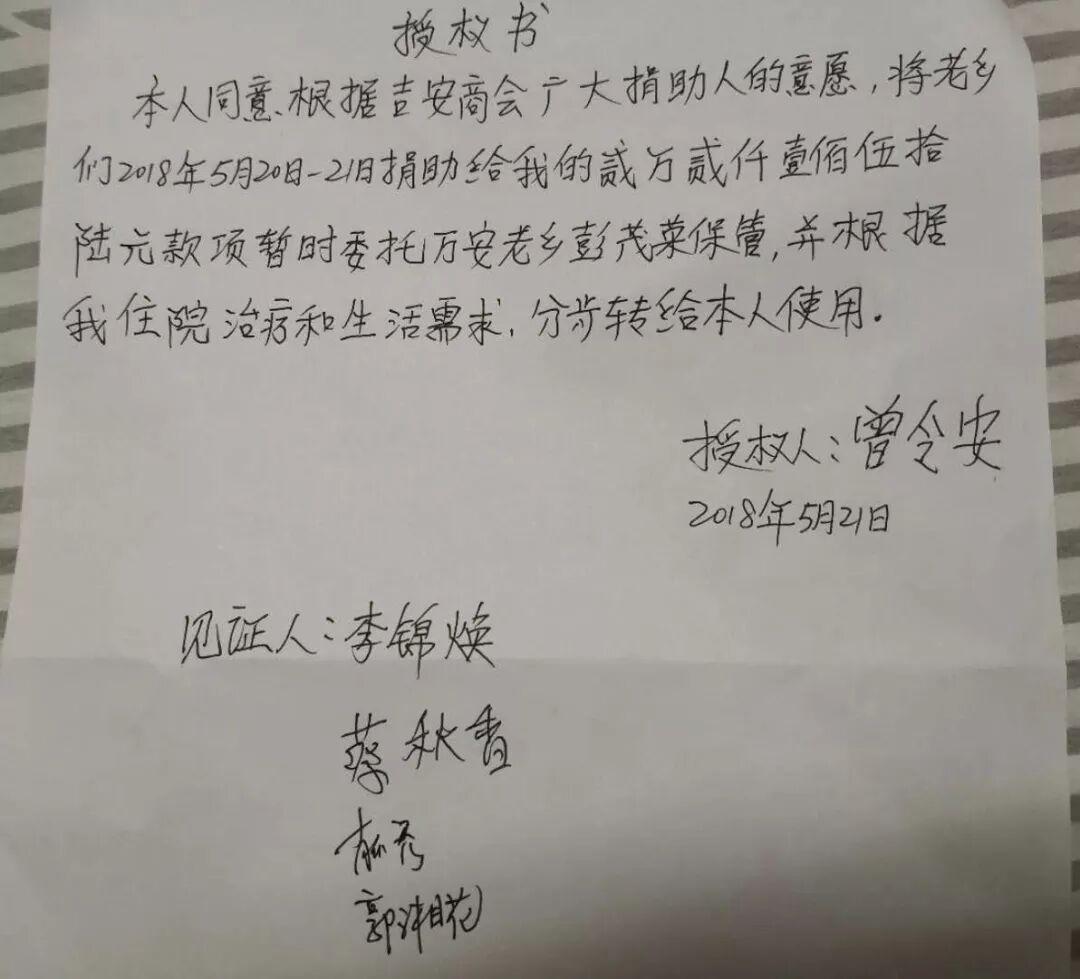 授权书
本人同意根据吉安商会广大捐助人的意愿，将老乡
们2018年5月20日-21日捐助给我的贰万贰仟壹佰伍拾
陆元款项暂时委托万安老乡彭茂菜保管，并根据
我住院治疗和生活需求，分步转给本人使用。
授权人：曾令安
2018年5月21日
见证人：李锦焕
蔡秋香
郭